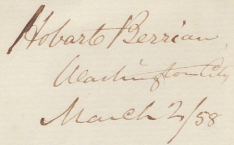 Hobart Berrian,
Washington City
March 2/58